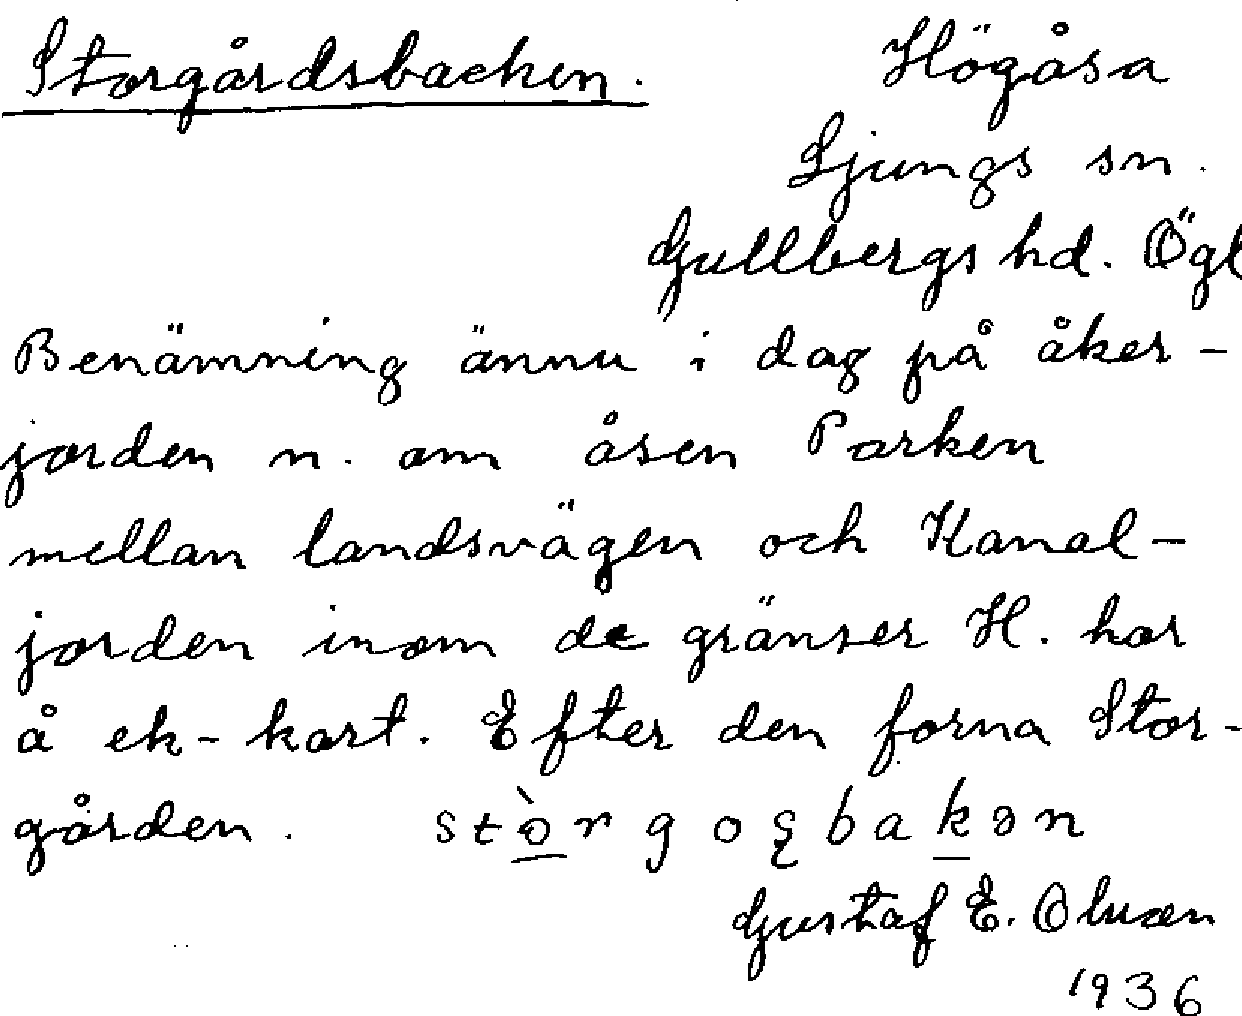 Storgårdsbacken.
Högåsa
Ljungs sn.
Gullbergs hd. Ögl
Benämning ännu i dag på åker-
jorden n. om åsen Parken
mellan landsvägen och Kanal-
jorden inom de gränser H. har
å ek-kart. Efter den forna Stor-
gården. stò̲r goʂba k̲ən
Gustaf E.
1936